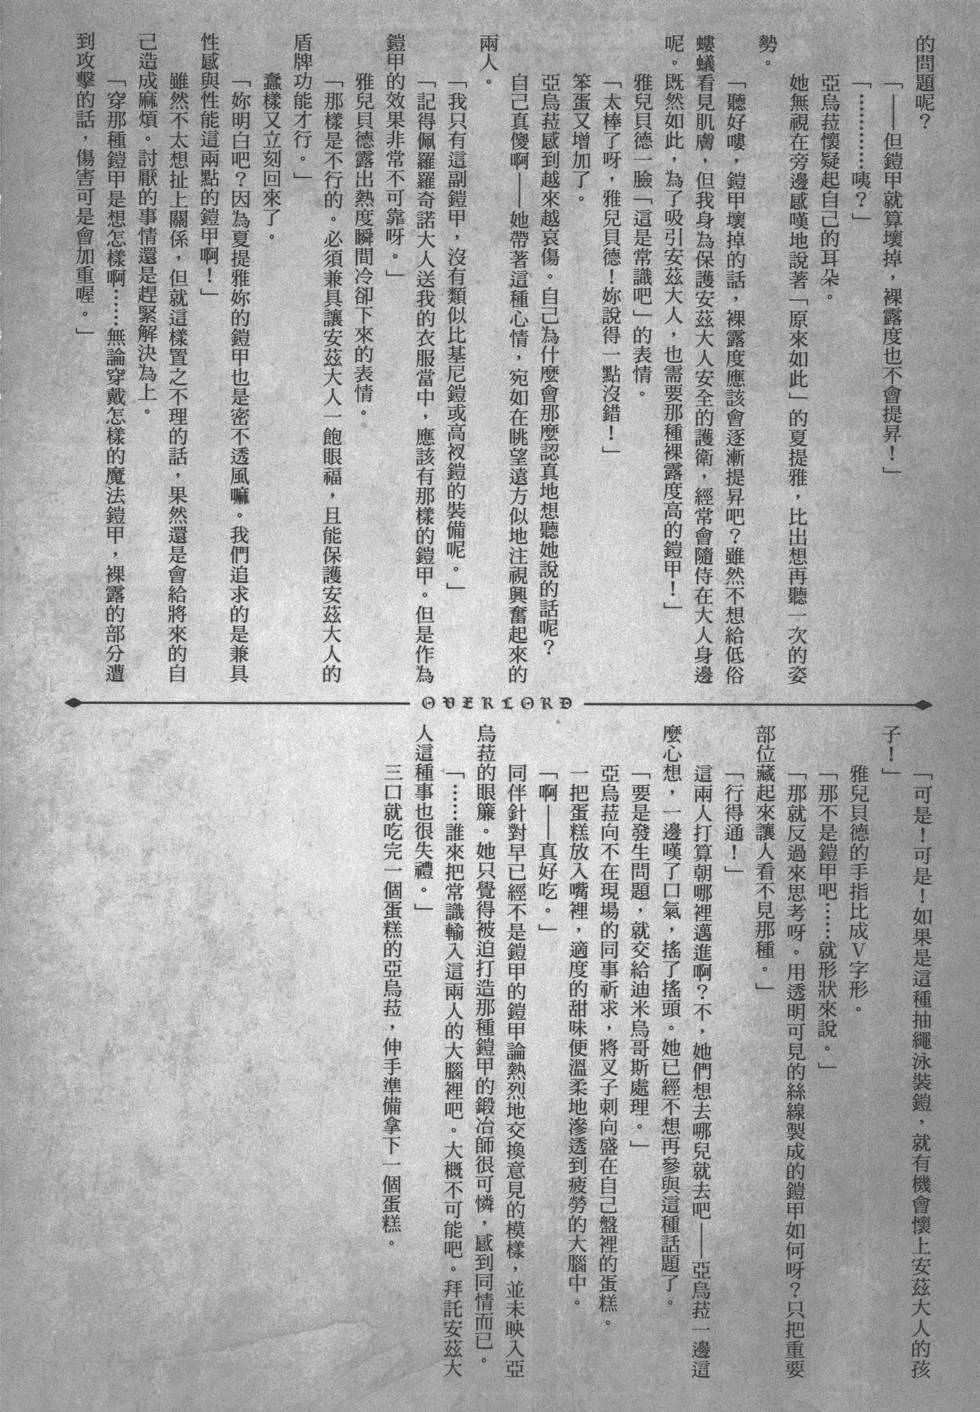 的問題呢？
「——但鎧甲就算壞掉，裸露度也不會提昇！」
「…………咦？」
亞烏菈懷疑起自己的耳朵。
她無視在旁邊感嘆地說著「原來如此」的夏提雅，比出想再聽一次的姿
勢。
「聽好嘍，鎧甲壞掉的話，裸露度應該會逐漸提昇吧？雖然不想給低俗
螻蟻看見肌膚，但我身為保護安茲大人安全的護衛，經常會隨侍在大人身邊
呢。既然如此，為了吸引安茲大人，也需要那種裸露度高的鎧甲！」
雅兒貝德一臉「這是常識吧」的表情。
「太棒了呀，雅兒貝德！妳說得一點沒錯！」
笨蛋又增加了。
亞烏菈感到越來越哀傷。自己為什麼會那麼認真地想聽她說的話呢？
自己真傻啊——她帶著這種心情，宛如在眺望遠方似地注視興奮起來的
兩人。
「我只有這副鎧甲，沒有類似比基尼鎧或高衩鎧的裝備呢。」
「記得佩羅羅奇諾大人送我的衣服當中，應該有那樣的鎧甲。但是作為
鎧甲的效果非常不可靠呀。」
雅兒貝德露出熱度瞬間冷卻下來的表情。
「那樣是不行的。必須兼具讓安茲大人一飽眼福，且能保護安茲大人的
盾牌功能才行。」
蠢樣又立刻回來了。
「妳明白吧？因為夏提雅妳的鎧甲也是密不透風嘛。我們追求的是兼具
性感與性能這兩點的鎧甲啊！」
雖然不太想扯上關係，但就這樣置之不理的話，果然還是會給將來的自
己造成麻煩。討厭的事情還是趕緊解決為上。
「穿那種鎧甲是想怎樣啊……無論穿戴怎樣的魔法鎧甲，裸露的部分遭
到攻擊的話，傷害可是會加重喔。」
OVERLORD
「可是！可是！如果是這種抽繩泳裝鎧，就有機會懷上安茲大人的孩
子！」
雅兒貝德的手指比成V字形。
「那不是鎧甲吧……就形狀來說。」
「那就反過來思考呀。用透明可見的絲線製成的鎧甲如何呀？只把重要
部位藏起來讓人看不見那種。」
「行得通！」
這兩人打算朝哪裡邁進啊？不，她們想去哪兒就去吧——亞烏菈一邊這
麼心想，一邊嘆了口氣，搖了搖頭。她已經不想再參與這種話題了。
「要是發生問題，就交給迪米烏哥斯處理。」
亞烏菈向不在現場的同事祈求，將叉子刺向盛在自己盤裡的蛋糕。
一把蛋糕放入嘴裡，適度的甜味便溫柔地滲透到疲勞的大腦中。
「啊——真好吃。」
同伴針對早已經不是鎧甲的鎧甲論熱烈地交換意見的模樣，並未映入亞
烏菈的眼簾。她只覺得被迫打造那種鎧甲的鍛冶師很可憐，感到同情而已。
「……誰來把常識輸入這兩人的大腦裡吧。大概不可能吧。拜託安茲大
人這種事也很失禮。」
三口就吃完一個蛋糕的亞烏菈，伸手準備拿下一個蛋糕。